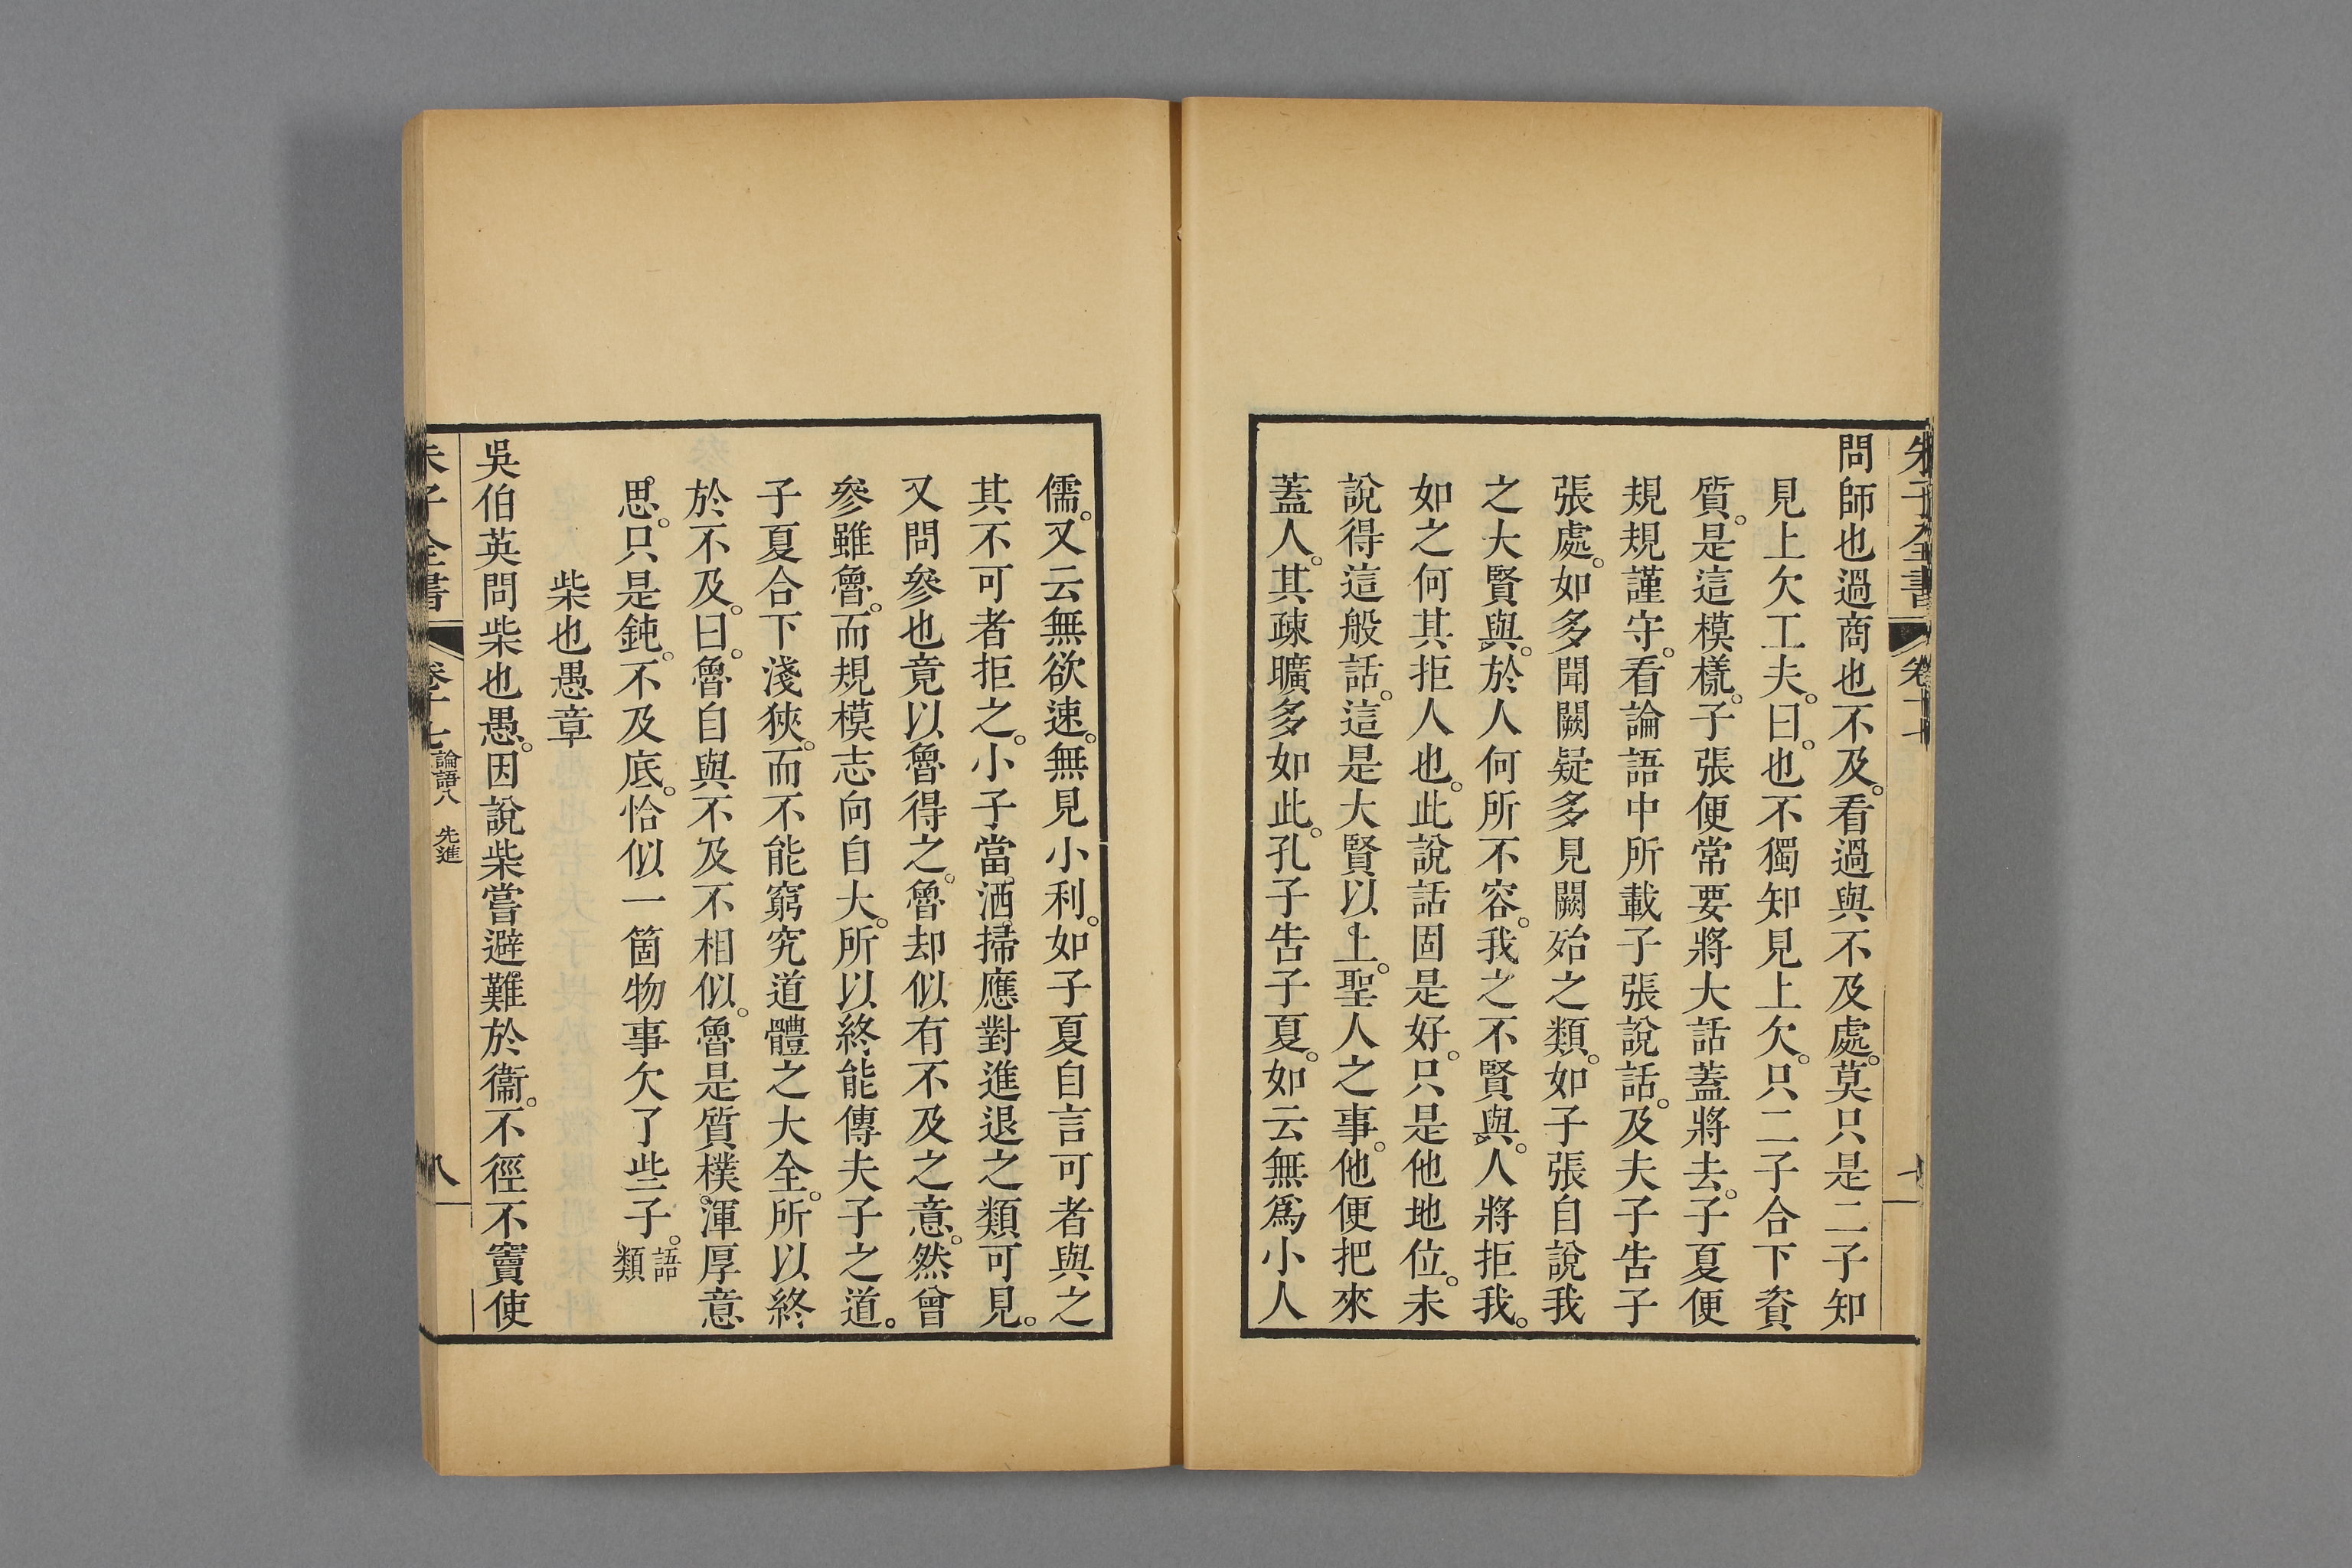 朱子全書 卷十七
問師也過商也不及。看過與不及處。莫只是二子知
見上欠工夫。曰。也不獨知見上欠。只二子合下資
質。是這模樣。子張便常要將大話蓋將去。子夏便
規規謹守。看論語中所載子張說話。及夫子告子
張處。如多聞闕疑多見闕殆之類。如子張自說我
之大賢與。於人何所不容。我之不賢與。人將拒我。
如之何其拒人也。此說話固是好。只是他地位。未
說得這般話。這是大賢以上。聖人之事。他便把來
蓋人。其疎曠多如此。孔子告子夏。如云無爲小人
儒。又云無欲速。無見小利。如子夏自言可者與之
其不可者拒之。小子當洒掃應對進退之類可見。
又問參也竟以魯得之。魯却似有不及之意。然曾
參雖魯。而規模志向自大。所以終能傳夫子之道。
子夏合下淺狹。而不能窮究道體之大全。所以終
於不及。曰。魯自與不及不相似。魯是質樸渾厚意
思。只是鈍。不及底。恰似一箇物事欠了些子。語類
柴也愚章
吳伯英問柴也愚。因說柴嘗避難於衞。不徑不竇使
朱子全書 卷十七 論語八 先進 八